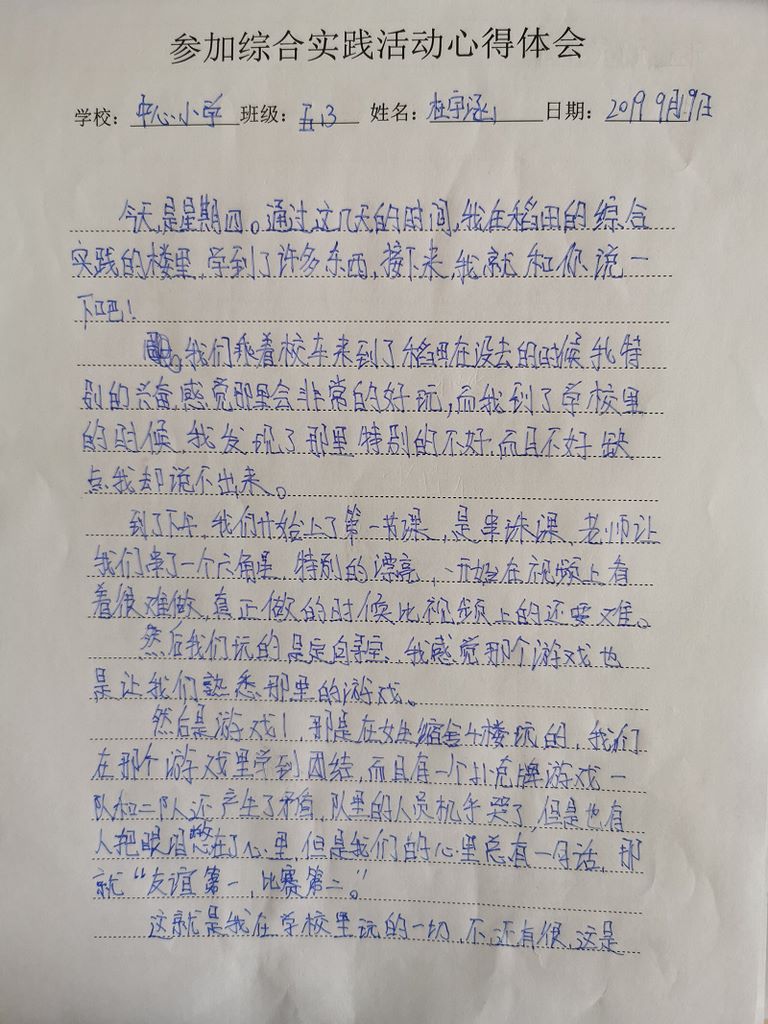 参加综合实践活动心得体会
学校：中心小学 班级：五13 姓名：杜宇涵 日期：2019 9月19日
今天,是星期四。通过这几天的时间,我在稻田的综合
实践的楼里,学到了许多东西,接下来,我就和你说一
下吧！
我们乘着校车来到了稻田在没去的时候我特
别的兴奋,感觉那里会非常的好玩,而我到了学校里
的时候,我发现了那里特别的不好,而且不好缺
点我却说不出来。
到了下午,我们开始上了第一节课,是串珠课,老师让
我们串了一个六角星,特别的漂亮,一开始在视频上看
着很难做,真正做的时候比视频上的还要难。
然后我们玩的是定向寻宝,我感觉那个游戏也
是让我们熟悉那里的游戏。
然后是游戏1,那是在女生宿舍4楼玩的,我们
在那个游戏里学到团结,而且有一个扑克牌游戏一
队和二队还产生了矛盾,队里的人员机乎哭了,但是也有
人把眼泪憋在了心里,但是我们的心里总有一句话,那
就“友谊第一,比赛第二。”
这就是我在学校里玩的一切,不,还有很,这是